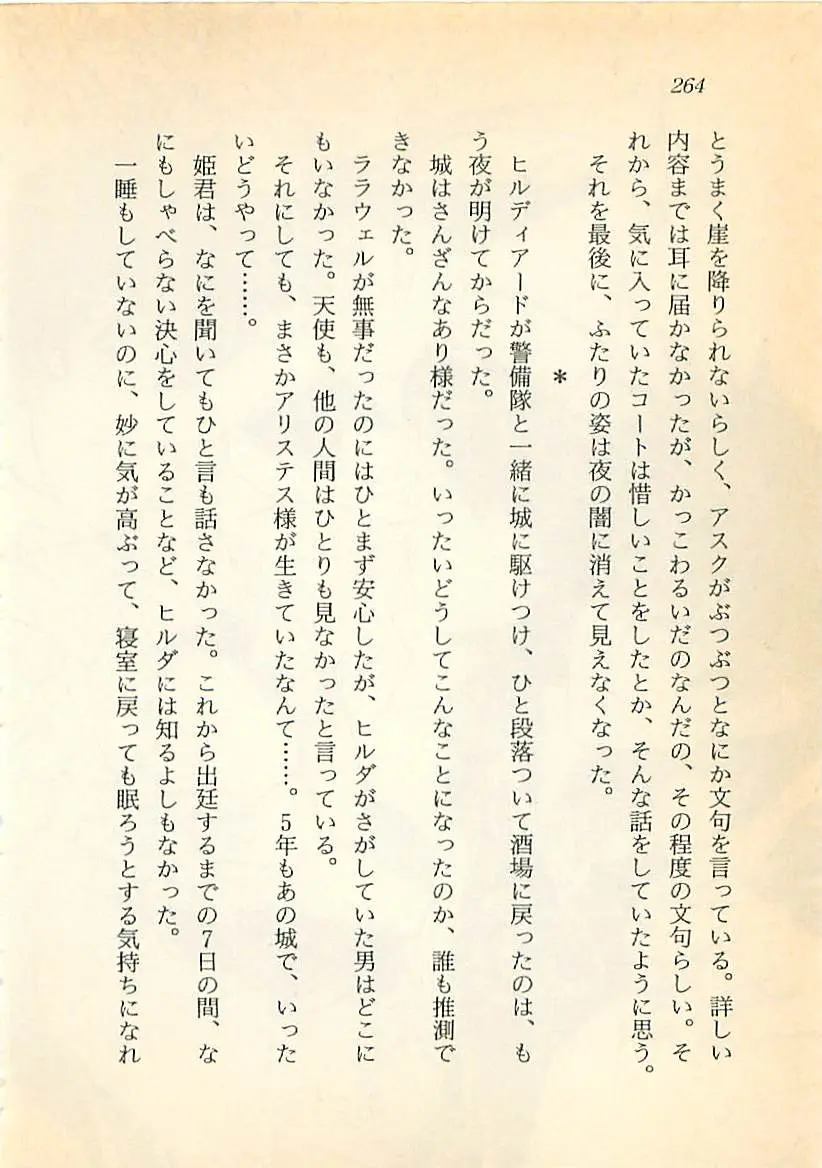 264
とうまく崖を降りられないらしく、アスクがぶつぶつとなにか文句を言っている。詳しい
内容までは耳に届かなかったが、かっこわるいだのなんだの、その程度の文句らしい。そ
れから、気に入っていたコートは惜しいことをしたとか、そんな話をしていたように思う。
それを最後に、ふたりの姿は夜の闇に消えて見えなくなった。
*
ヒルディアードが警備隊と一緒に城に駆けつけ、ひと段落ついて酒場に戻ったのは、も
う夜が明けてからだった。
城はさんざんなあり様だった。いったいどうしてこんなことになったのか、誰も推測で
きなかった。
ララウェルが無事だったのにはひとまず安心したが、ヒルダがさがしていた男はどこに
もいなかった。天使も、他の人間はひとりも見なかったと言っている。
それにしても、まさかアリステス様が生きていたなんて……。5年もあの城で、いった
いどうやって……。
姫君は、なにを聞いてもひと言も話さなかった。これから出廷するまでの7日の間、な
にもしゃべらない決心をしていることなど、ヒルダには知るよしもなかった。
一睡もしていないのに、妙に気が高ぶって、寝室に戻っても眠ろうとする気持ちになれ